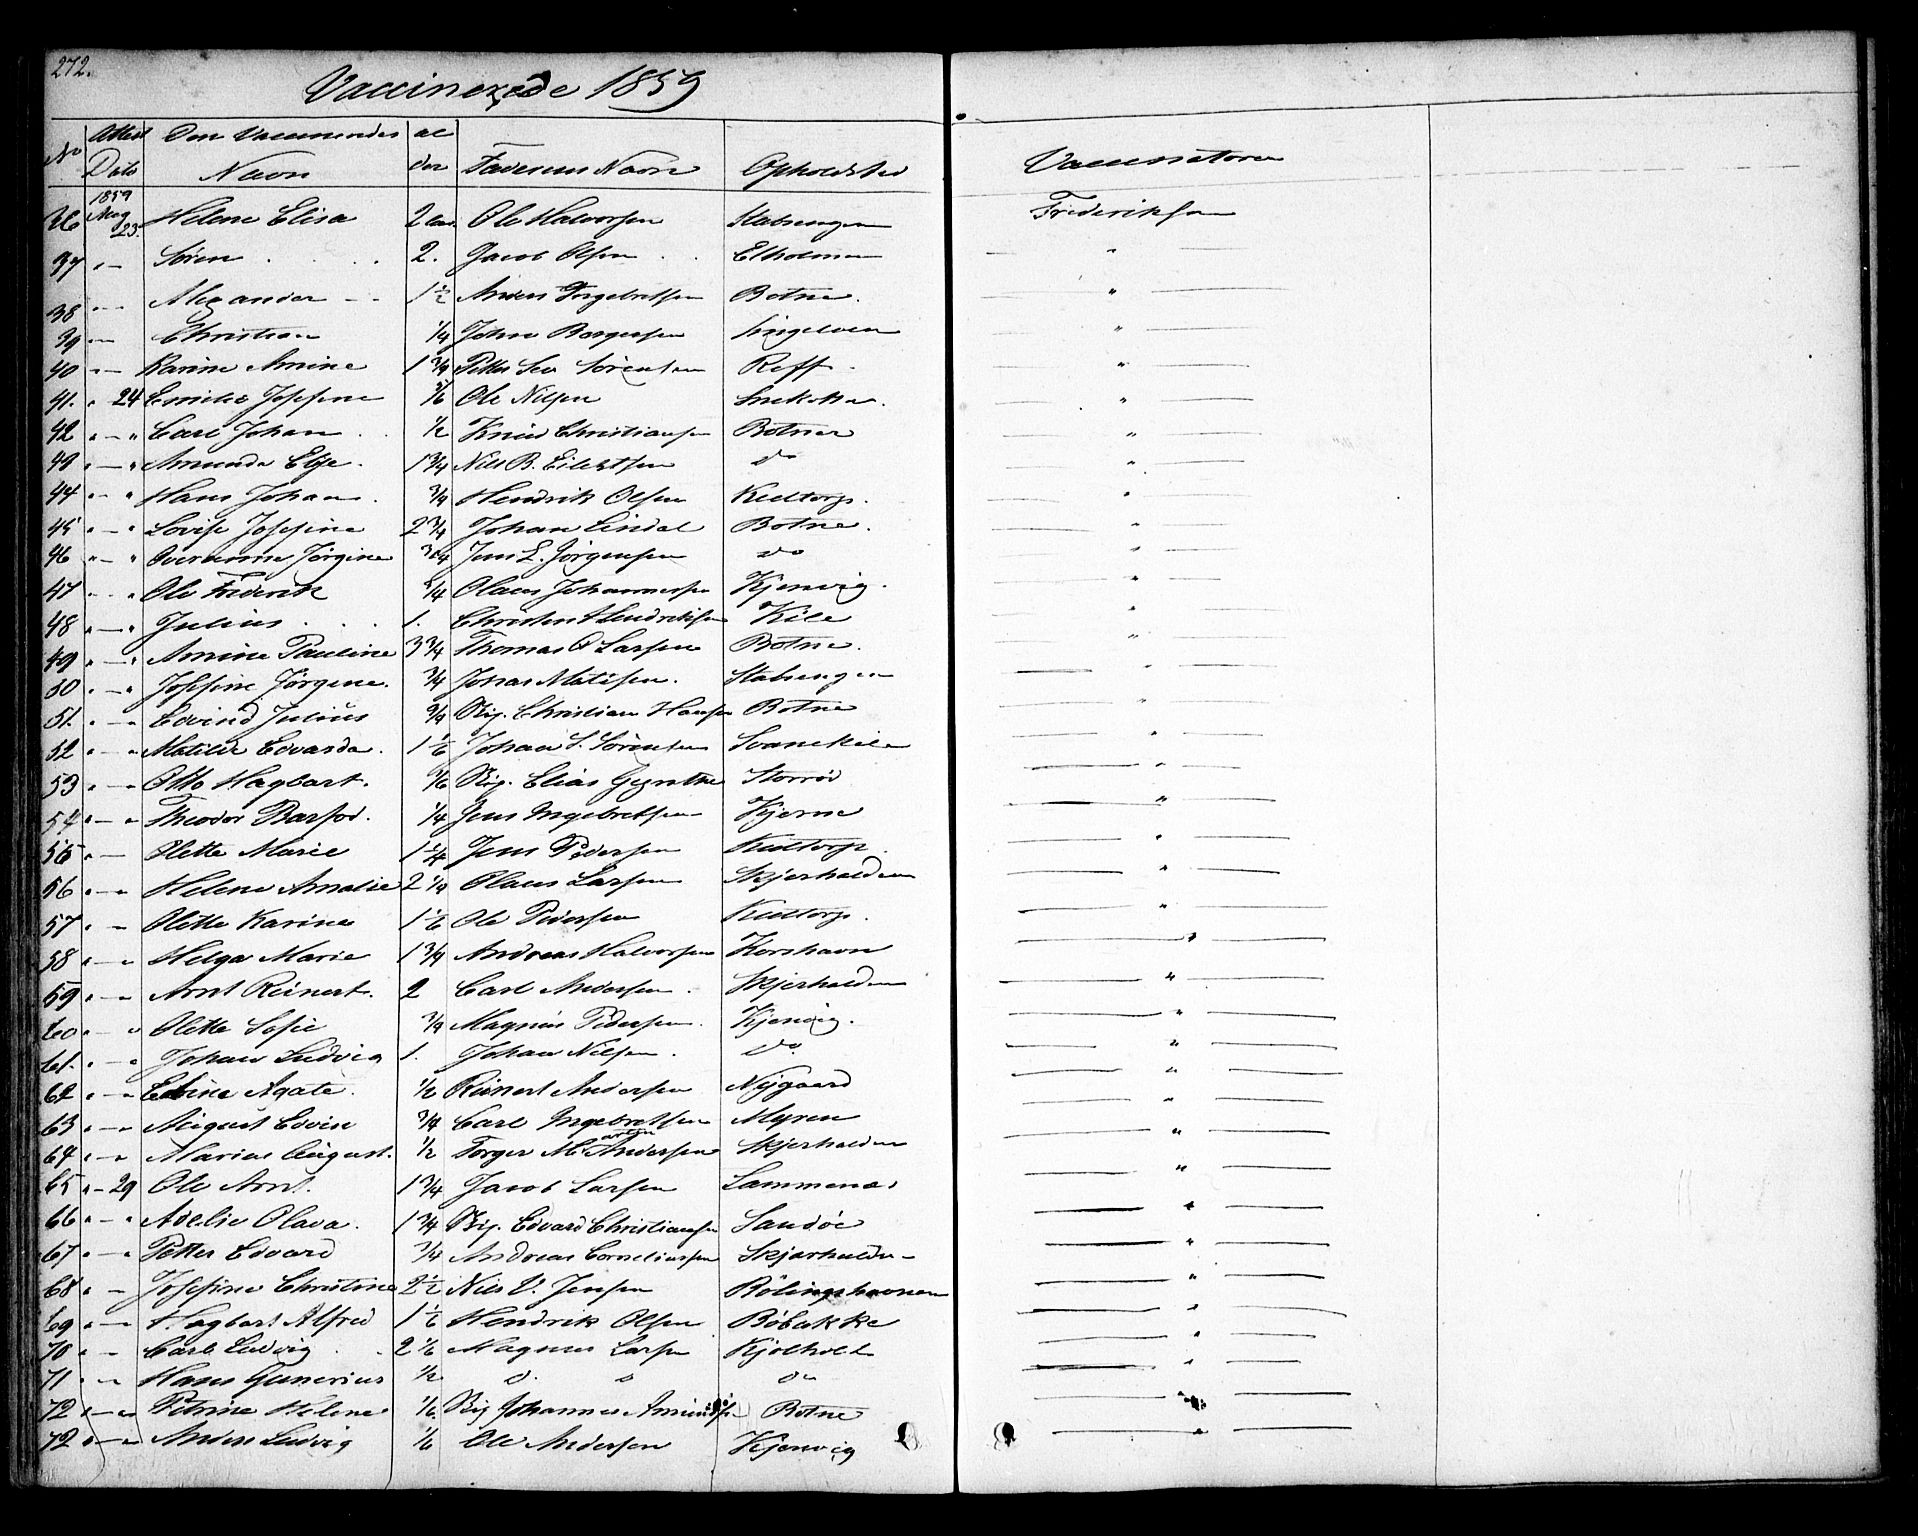 272.
Vaccinerede 1859
No Attest Dato Den Vaccineredes Navn al der Faderens Navn Opholdsted Vaccinatoren
1859
36 Aug 23. Helene Elisa 2 Ole Halvorsen Stabsengen Frederiksen
37 " — Søren . . . 2. Jacob Olsen . . Elholmen — " —
38 " — Alexander - - 1 1/2 Anders Ingebretsen Botne. — " —
39 " — Christian 1/4 Johan Borgersen — " —
40 " — Karine Amine 1 3/4 Petter Sev Sørensen Roff . — " —
41. " 24 Emilie Josefine Ole Nilsen — " —
42 " — " Carl Johan . . 1/2 Knud Christiansen Botner — " —
43 " — " Amunda Else . 1 3/4 Nils B. Eilertsen do — " —
44 " — " Hans Johan . 3/4 Hendrik Olsen Kultorp. — " —
45 " — " Lovise Josefine 2 3/4 Johan Lindal Botne . — " —
46 " — " Jørgine 3/4 Jens L. Jørgensen do — " —
47 " — " Ole Frederik Olaus Johannessen Kjenvig. — " —
48 " — " Julius . . . 1. Christen Hendriksen Kile — " —
49 " — " Amine Pauline 3 3/4 Thomas O Larsen Botne . — " —
50 " — " Josefine Jørgine . 3/4 Johan Matisen . Stabsengen — " —
51. " — Edvind Julius 3/4 Christian Hansen Botne — " —
52 " — " Matilde Edvarda . Johan S. Sørensen Svanekile — " —
53 " — " Otto Hagbart . Elias Storrød — " —
54 " — " Theodor . 1/4 Jens Ingebretsen Kjerne — " —
55 " — Olette Marie 1 1/4 Jens Pedersen Kultorp. — " —
56 " — " Helene Amalie 2 1/4 Olaus Larsen Skjerhalden — " —
57 " — Olette Karine Ole Pedersen Kultorp . — " —
58 " — " Helga Marie 1 3/4 Andreas Halvorsen Korshavn — " —
59 " — " Arnt Reinert . 2 Carl Andersen . Skjerhalden — " —
60 " — " Olette Sofie 3/4 Magnus Pedersen . Kjenvig . — " —
61. " — " Johan Ludvig 1. Johan Nilsen . do — " —
62 " — " Agate . 1/2 Reinert Andersen Nygaard — " —
63 " — " August Edvin 3/4 Carl Ingebretsen Myren — " —
64 " — " Marius August . 1/2 Torger M Andersen Skjerhalden — " —
65 " — 29 Ole Arnt . 1 3/4 Jacob Larsen — " —
66 " — " Adelie Olava . 1 3/4 Edvard Christiansen Sandøe — " —
67 " — " Petter Edvard 3/4 Andreas Corneliussen Skjærhalden — " —
68 " — Josefine Christine 2 1/2 Nils V. Jensen Rølingshavnen — " —
69 " — " Hagbart Alfred Hendrik Olsen Bøbakke — " —
70 " — Carl Ludvig . . Magnus Larsen Kjølholt — " —
71 " — " Hans Gunerius 1/2 d. o do — " —
72 " — " Petrine Helene Johannes Amundsen Botne — " —
72 " — " Anders Ludvig Ole Andersen Kjenvig — " —